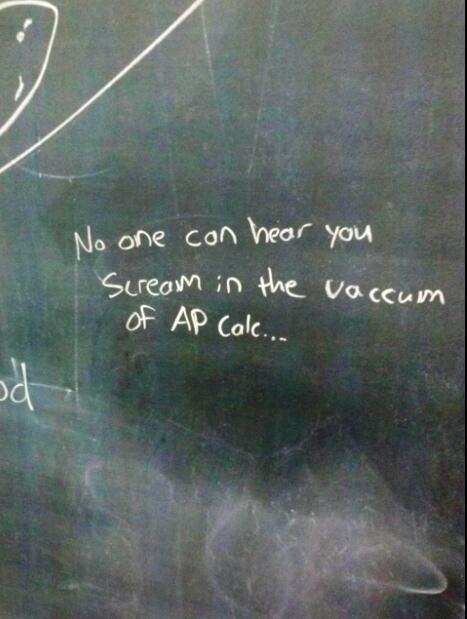 No one can hear you
Scream in the vaccum
of AP Calc...
od